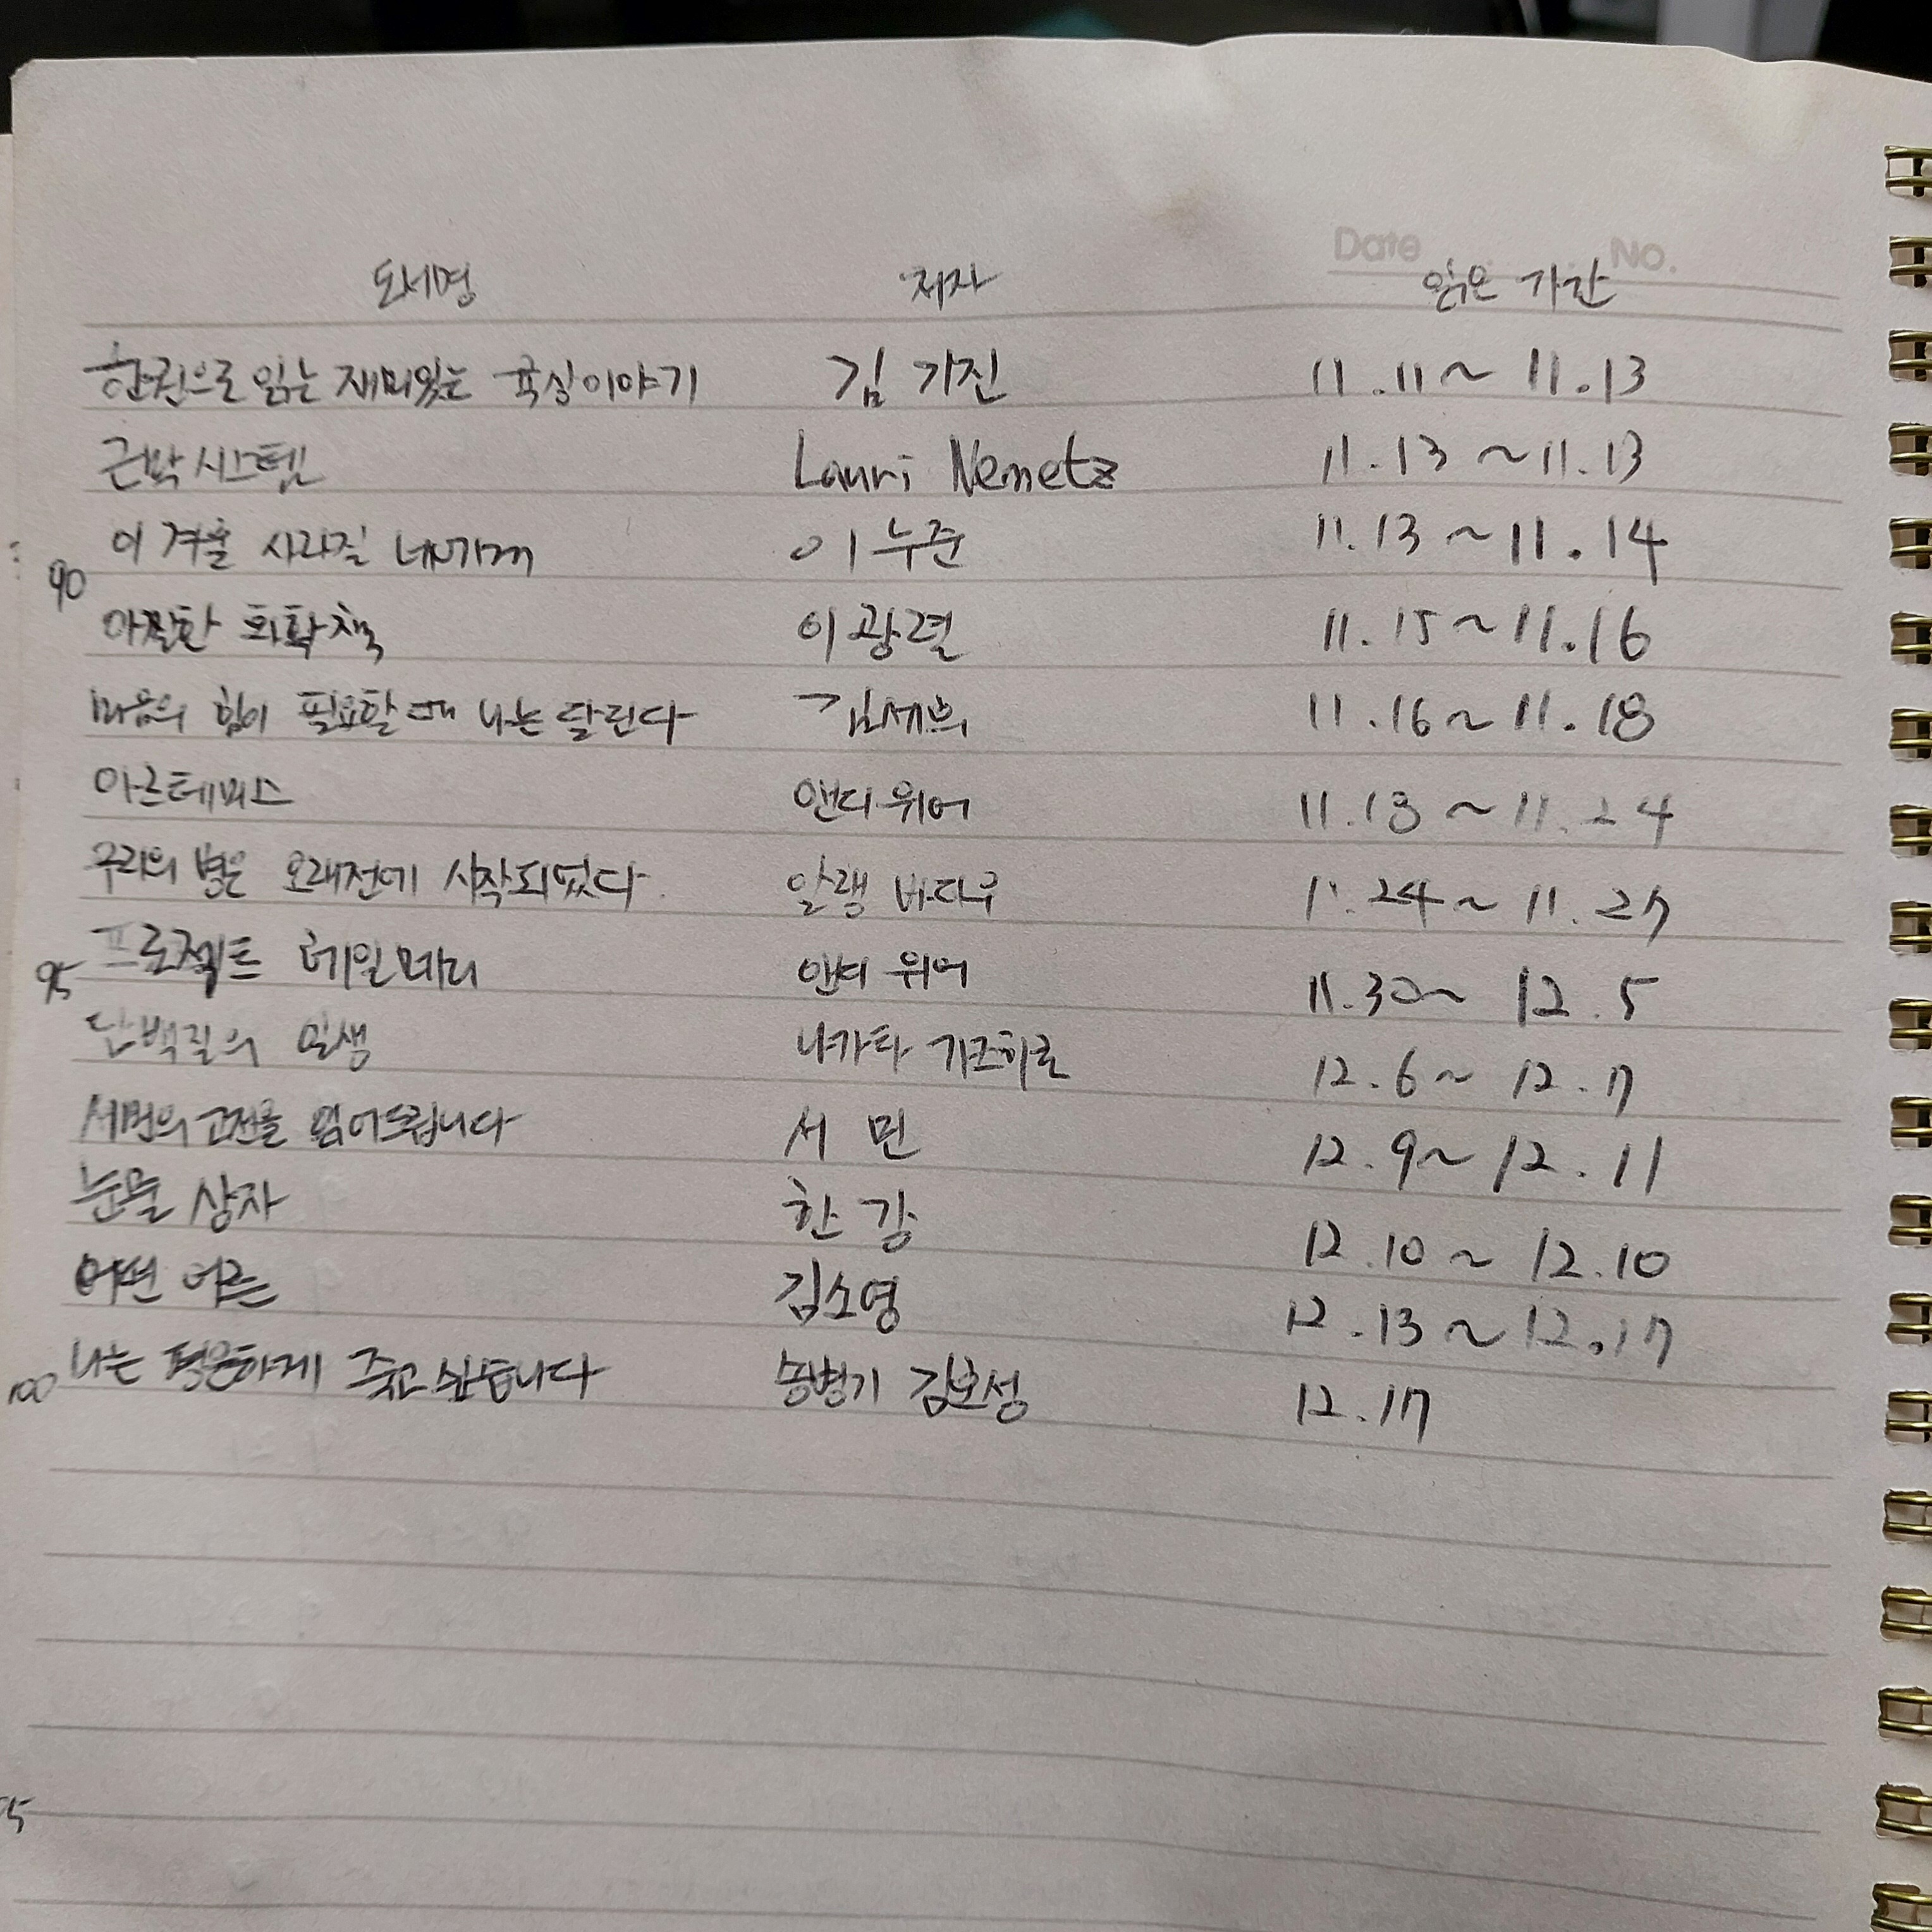 Date No.
도서명 저자 읽은 기간
한권으로 읽는 재미있는 욕실이야기 김 기진 11.11~ 11.13
근막 시스템 Lauri Nemetz 11.13 ~11.13
이 겨울 사라질 너에게 이누준 11.13 ~11.14
90
아찔한 화학책 이광렬 11.15~11.16
마음의 힘이 필요할 때 나는 달린다 김세희 11.16~11.18
아르테미스 앤디 위어 11.18 ~11.24
우리의 병은 오래전에 시작되었다. 알랭 바디우 11.24~ 11.27
95 프로젝트 헤일메리 앤디 위어 11.30~ 12.5
단백질의 일생 나가타 가즈히로 12.6~ 12.7
서민의 고전을 읽어드립니다 서 민 12.9~ 12.11
눈물 상자 한 강 12.10 ~ 12.10
어떤 어른 김소영 12.13 ~12.17
100 나는 평온하게 죽고 싶습니다 송병기 김호성 12.17
5